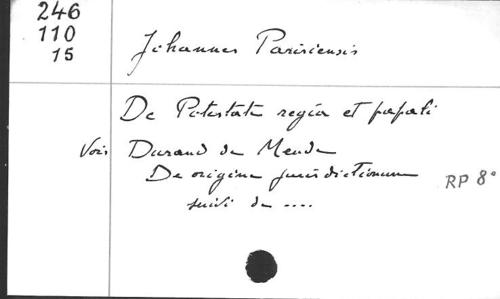 246
110
15
Johannes Parisiensis
De Potestate regia et papali
Vois Durand de Mende
De origine jurisdictionum
suivi de ....
RP 8°